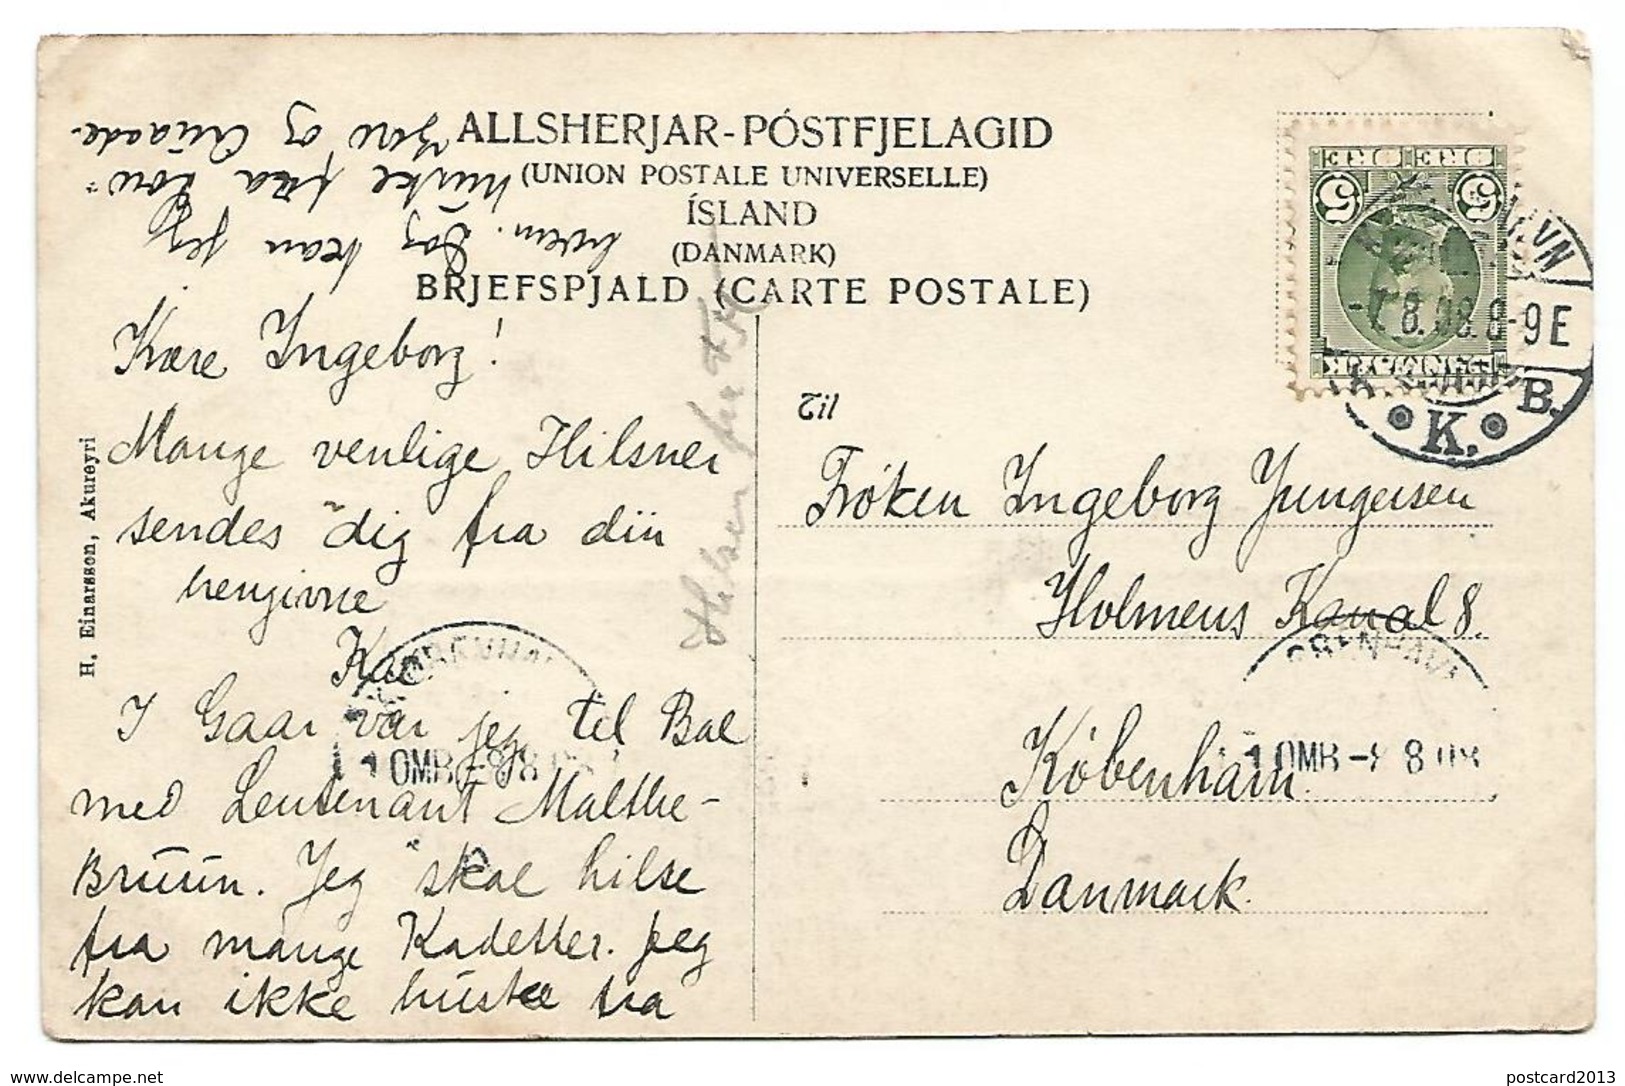 ALLSHERJAR-PÓSTFJELAGID
(UNION POSTALE UNIVERSELLE)
ÍSLAND
(DANMARK)
BRJEFSPJALD (CARTE POSTALE)
H. Einarsson, Akureyri
Kære Ingeborg!
Mange venlige Hilsner
sendes dig fra din
hengivne
I Gaar var jeg til Bal
med Leutenant Malthe-
Bruun. Jeg skal hilse
fra mange Kadetter. Jeg
kan ikke huske fra
hvem. Dog kan jeg
huske paa
og
Hilsen fra
Til
Frøken Ingeborg Jungersen
Holmens Kanal 8.
København.
Danmark.
5 5
ØRE ØRE
DANMARK
8-9 E
K. B.
10MB -8 8 08
10MB -8 8 08
www.delcampe.net
postcard2013